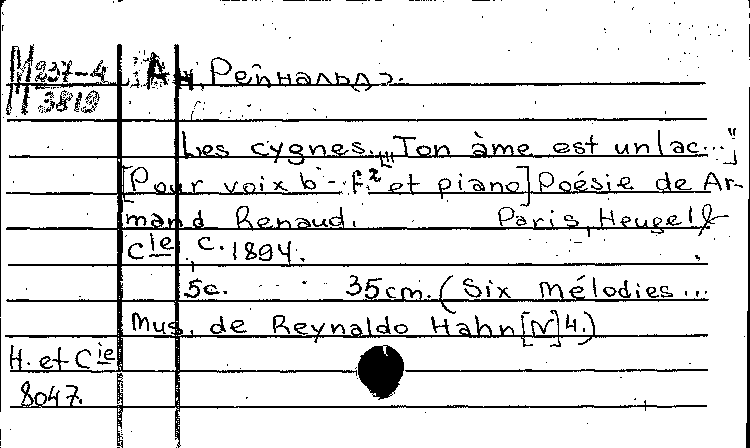 М 237-4
3819
Ан, Рейнальдо.
Les cygnes. „["Ton âme est un lac..."]
[Pour voix b - f² et piano] Poésie de Ar-
mand Renaud. Paris, Heugel &
Cie, c. 1894.
5c. 35cm. (Six mélodies...
Mus. de Reynaldo Hahn [N] 4.)
H. et Cie
8047.